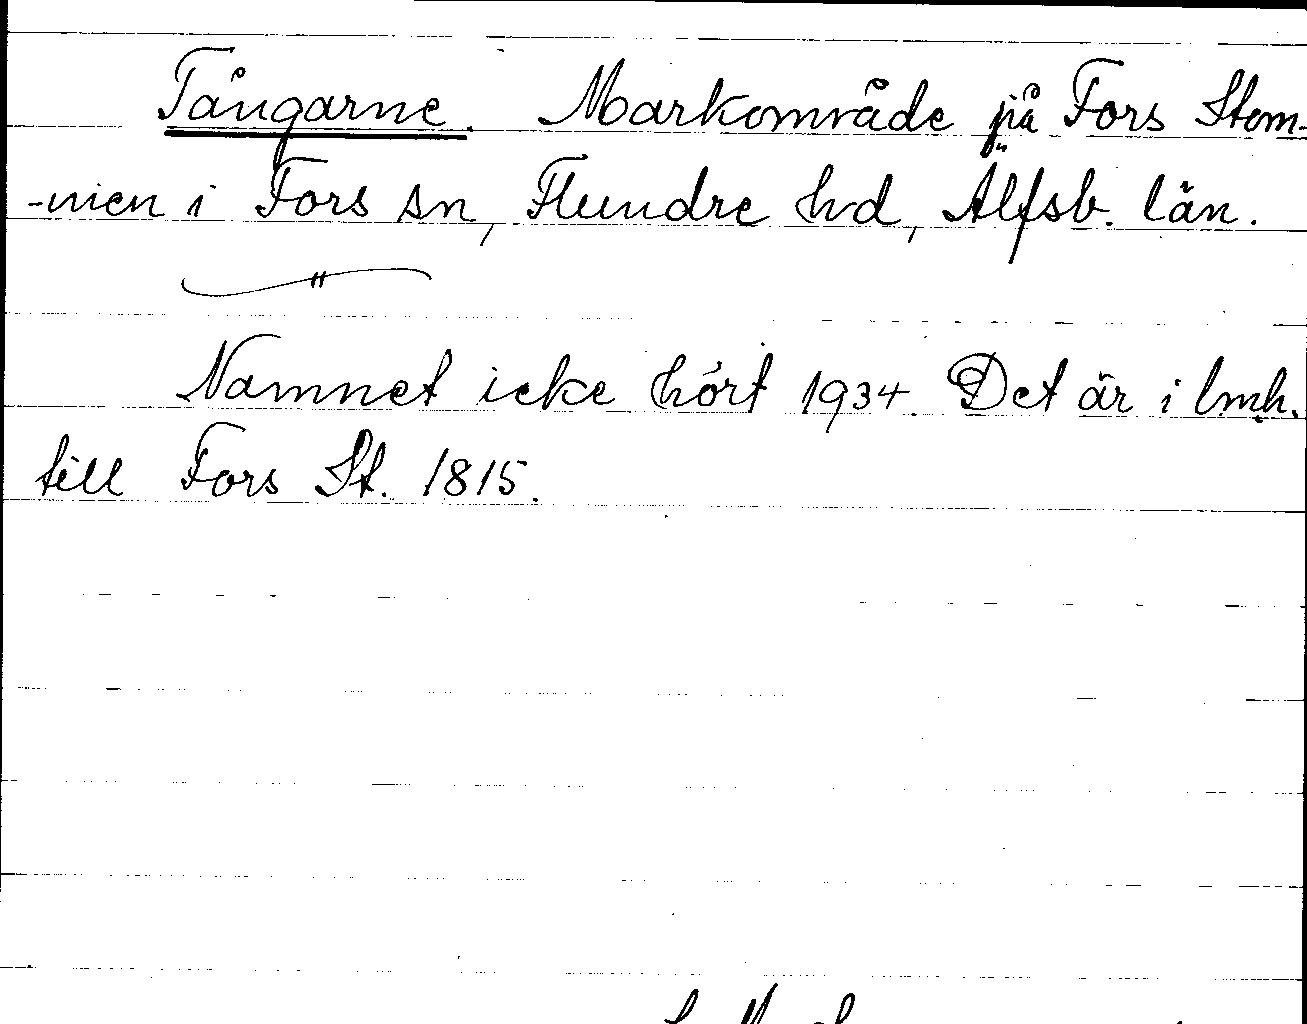 Tångarne. Markområde på Fors Stom-
-nien i Fors sn, Flundre hd, Älfsb. län.
"
Namnet icke hört 1934. Det är i lmh.
till Fors St. 1815.